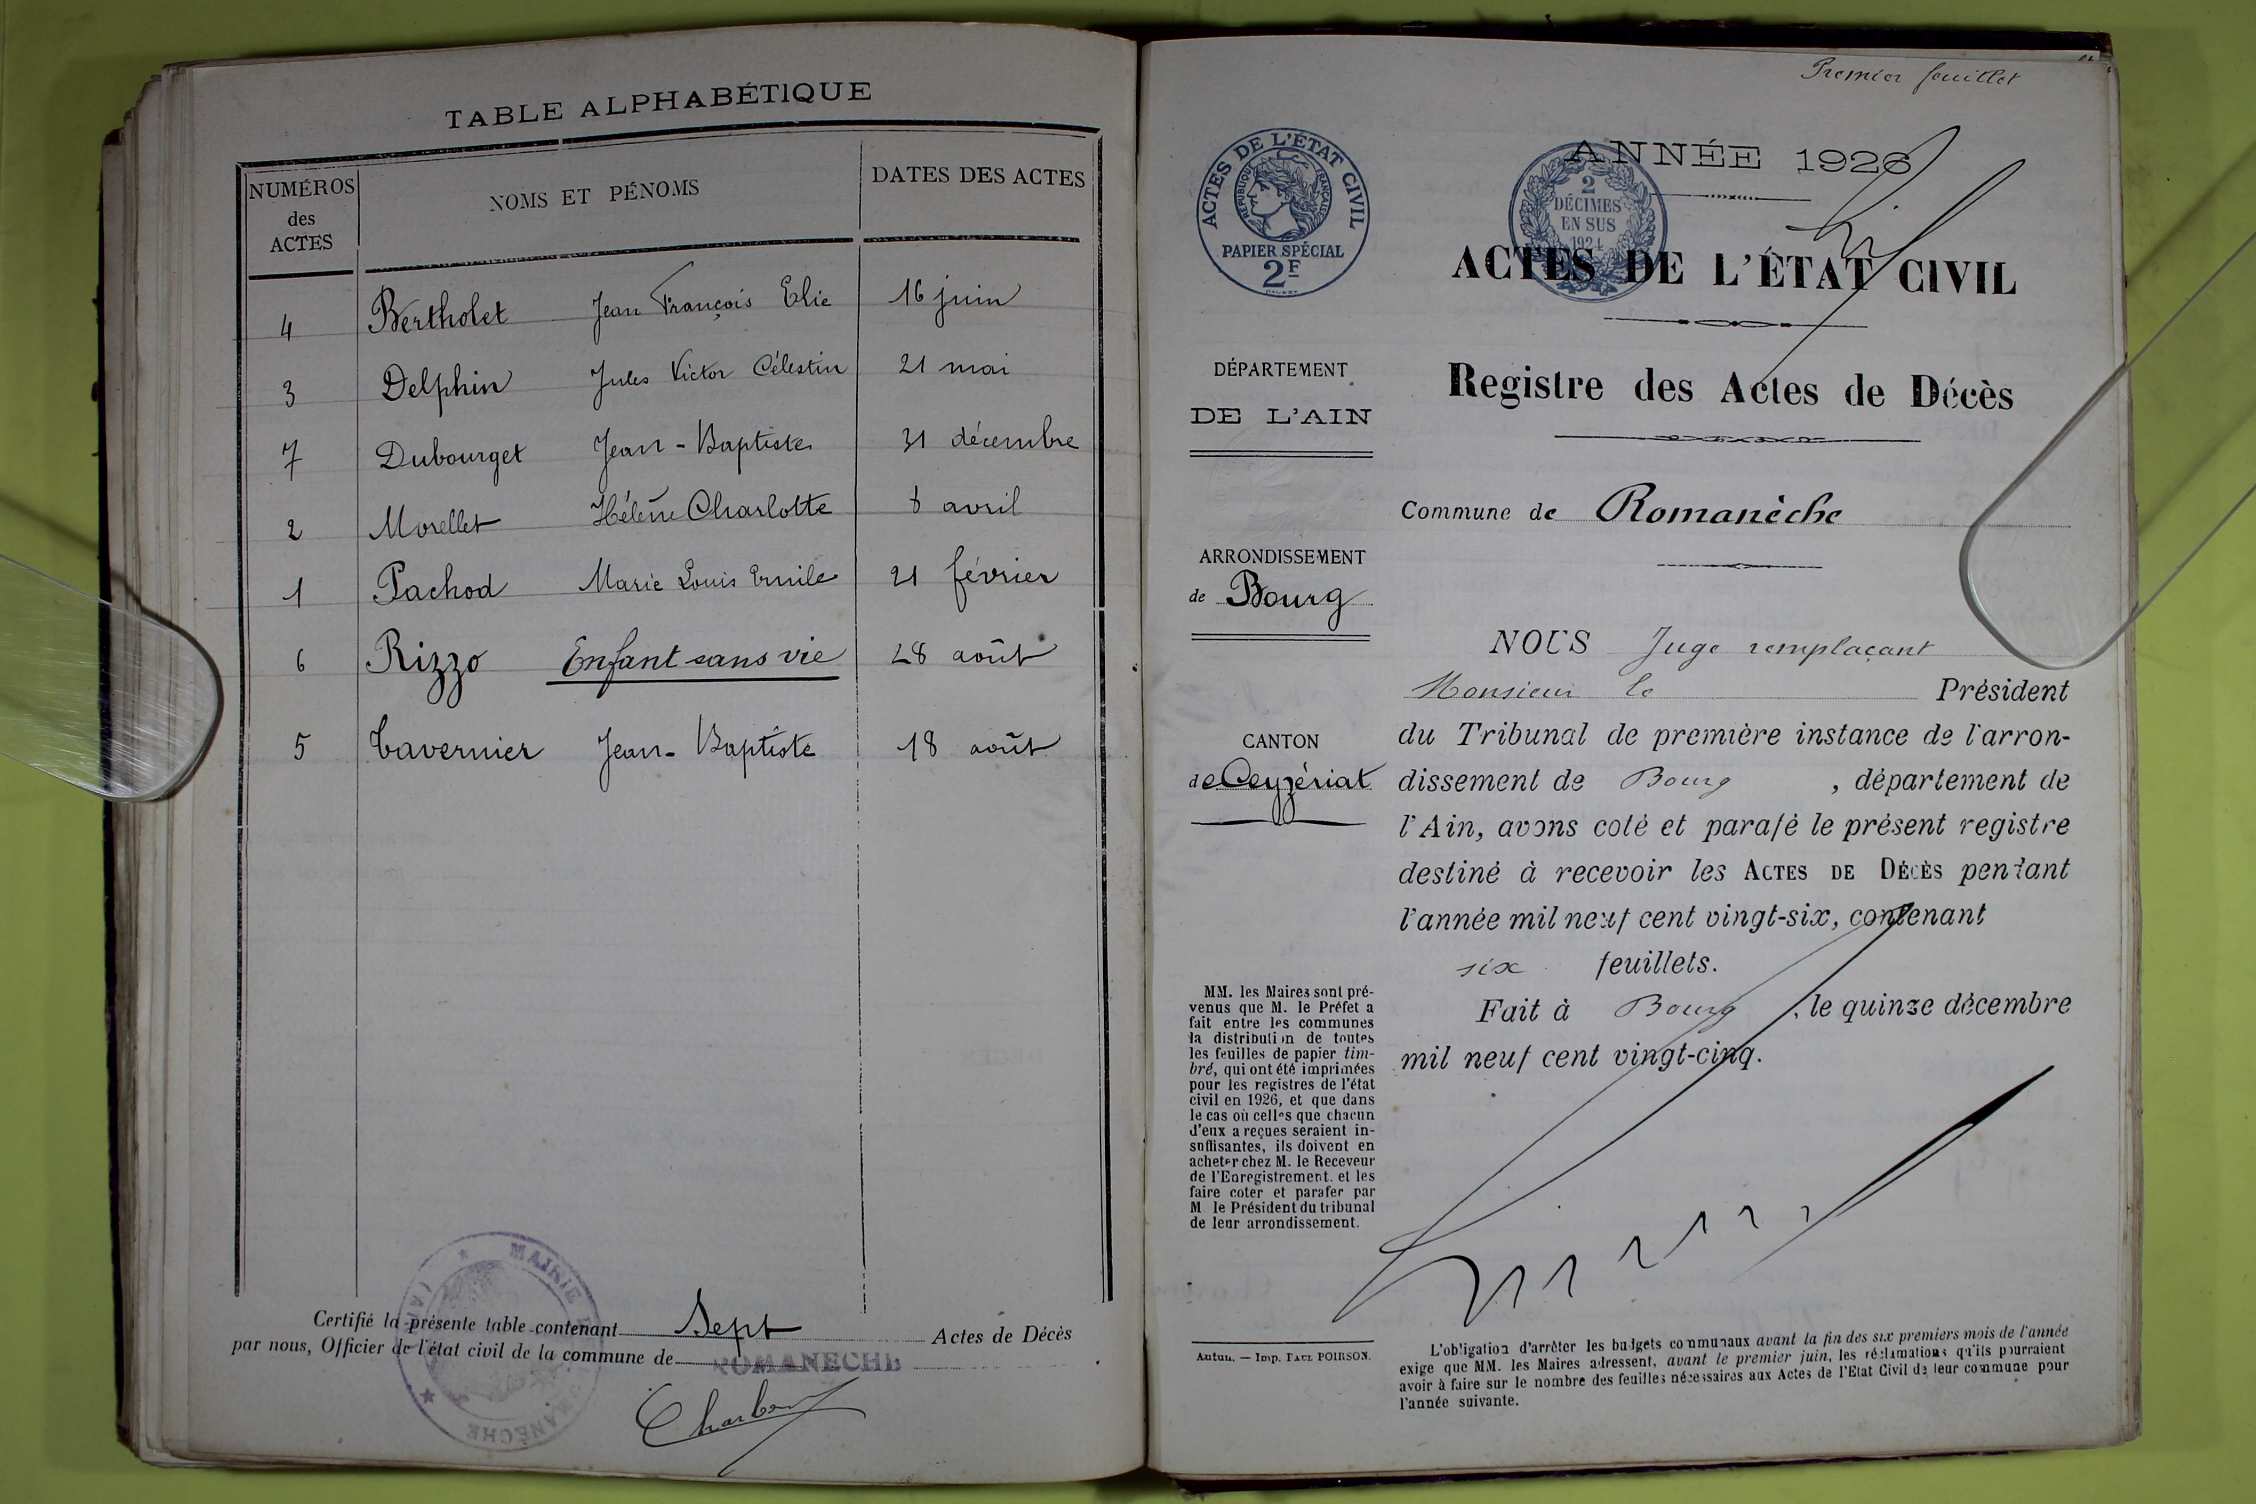 TABLE ALPHABÉTIQUE
NUMÉROS des ACTES
NOMS ET PÉNOMS
DATES DES ACTES
4 Bertholet Jean François Elie 16 juin
3 Delphin Jules Victor Célestin 21 mai
7 Dubourget Jean-Baptiste 31 décembre
2 Morellet Hélène Charlotte 8 avril
1 Pachod Marie Louis Emile 21 février
6 Rizzo Enfant sans vie 28 août
5 Tavernier Jean-Baptiste 18 août
Certifié la présente table contenant Sept Actes de Décès
par nous, Officier de l'état civil de la commune de ROMANECHE
MAIRIE
ROMANÈCHE
(AIN)
Premier feuillet
ACTES DE L'ÉTAT CIVIL
RÉPUBLIQUE FRANÇAISE
PAPIER SPÉCIAL
2F
2
DÉCIMES
EN SUS
1924
ANNÉE 1926
ACTES DE L'ÉTAT CIVIL
Registre des Actes de Décès
DÉPARTEMENT
DE L'AIN
ARRONDISSEMENT
de Bourg
CANTON
de Ceyzériat
MM. les Maires sont pré-
venus que M. le Préfet a
fait entre les communes
la distribution de toutes
les feuilles de papier tim-
bré, qui ont été imprimées
pour les registres de l'état
civil en 1926, et que dans
le cas où celles que chacun
d'eux a reçues seraient in-
suffisantes, ils doivent en
acheter chez M. le Receveur
de l'Enregistrement. et les
faire coter et parafer par
M. le Président du tribunal
de leur arrondissement.
Autun. — Imp. PAUL POIRSON.
Commune de Romanèche
NOUS Juge remplaçant
Monsieur le Président
du Tribunal de première instance de l'arron-
dissement de Bourg, département de
l'Ain, avons coté et parafé le présent registre
destiné à recevoir les ACTES DE DÉCÈS pendant
l'année mil neuf cent vingt-six, contenant
six feuillets.
Fait à Bourg, le quinze décembre
mil neuf cent vingt-cinq.
L'obligation d'arrêter les budgets communaux avant la fin des six premiers mois de l'année
exige que MM. les Maires adressent, avant le premier juin, les réclamations qu'ils pourraient
avoir à faire sur le nombre des feuilles nécessaires aux Actes de l'Etat Civil de leur commune pour
l'année suivante.